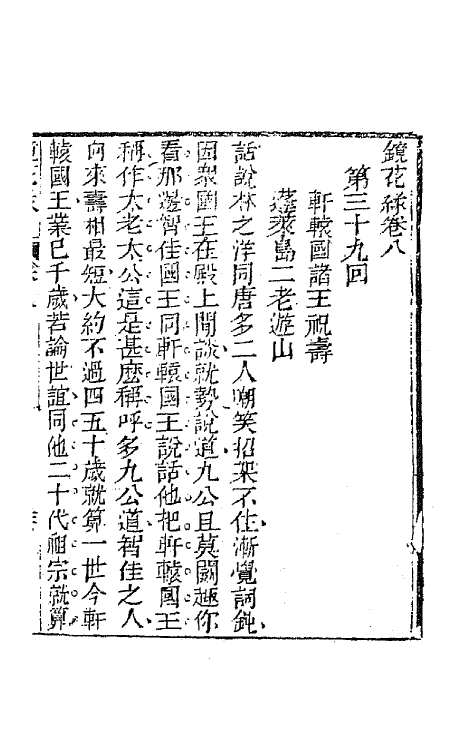 鏡花緣卷八
第三十九回
軒轅國諸王祝壽
蓬萊島二老遊山
話說林之洋同唐多二人嘲笑招架不住漸覺詞鈍
因衆國王在殿上閒談就勢說道九公且莫鬬趣你
看那邊智佳國王同軒轅國王說話他把軒轅國王
稱作太老太公這是甚麽稱呼多九公道智佳之人
向來壽相最短大約不過四五十歲就算一世今軒
轅國王業已千歲若論世誼同他二十代祖宗就算